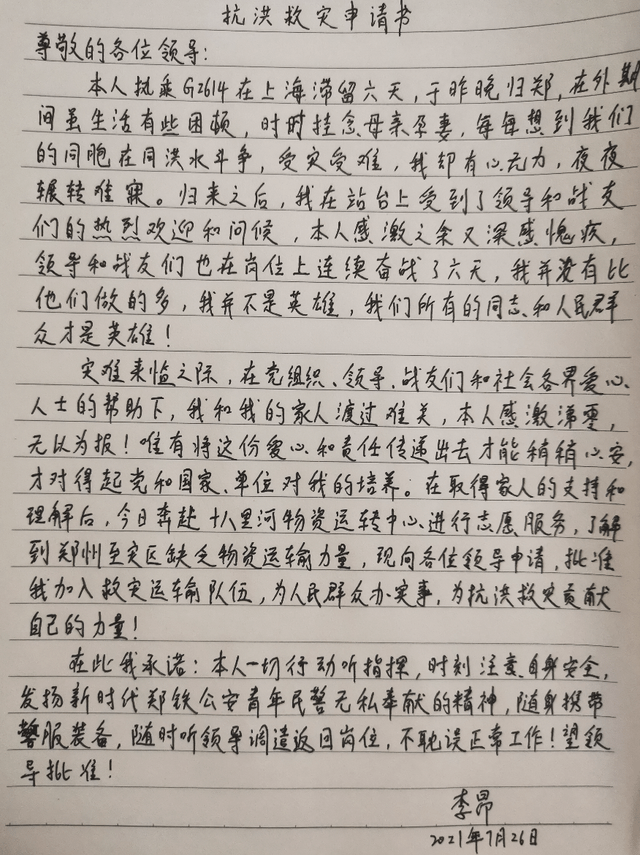 抗洪救灾申请书
尊敬的各位领导:
本人执乘G2614在上海滞留六天,于昨晚归郑,在外期
间虽生活有些困顿,时时挂念母亲孕妻,每每想到我们
的同胞在同洪水斗争,受灾受难,我却有心无力,夜夜
辗转难寐。归来之后,我在站台上受到了领导和战友
们的热烈欢迎和问候,本人感激之余又深感愧疚,
领导和战友们也在岗位上连续奋战了六天,我并没有比
他们做的多,我并不是英雄,我们所有的同志、和人民群
众才是英雄!
灾难来临之际,在党组织、领导、战友们和社会各界爱心
人士的帮助下,我和我的家人渡过难关,本人感激涕零,
无以为报!唯有将这份爱心和责任传递出去才能稍稍心安,
才对得起党和国家、单位对我的培养。在取得家人的支持和
理解后,今日奔赴十八里河物资运转中心进行志愿服务,了解
到郑州至灾区缺乏物资运输力量,现向各位领导申请,批准
我加入救灾运输队伍,为人民群众办实事,为抗洪救灾贡献
自己的力量!
在此我承诺:本人一切行动听指挥,时刻注意自身安全,
发扬新时代郑铁公安青年民警无私奉献的精神,随身携带
警服装备,随时听领导调遣返回岗位,不耽误正常工作!望领
导批准!
李昂
2021年7月26日